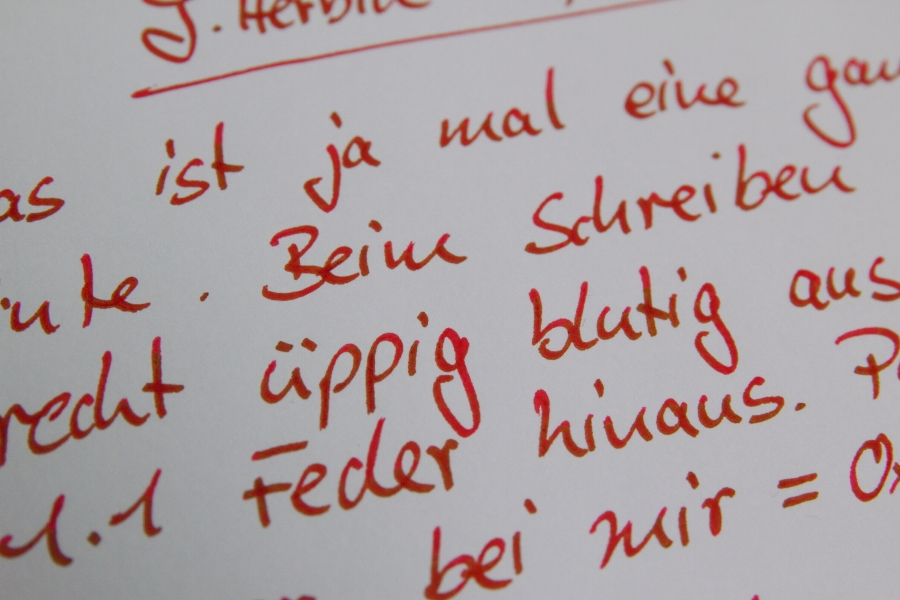 J. Herbin
as ist ja mal eine gan
inte. Beim Schreiben
recht üppig blutig aus
1.1 Feder hinaus. P
bei mir = Ox